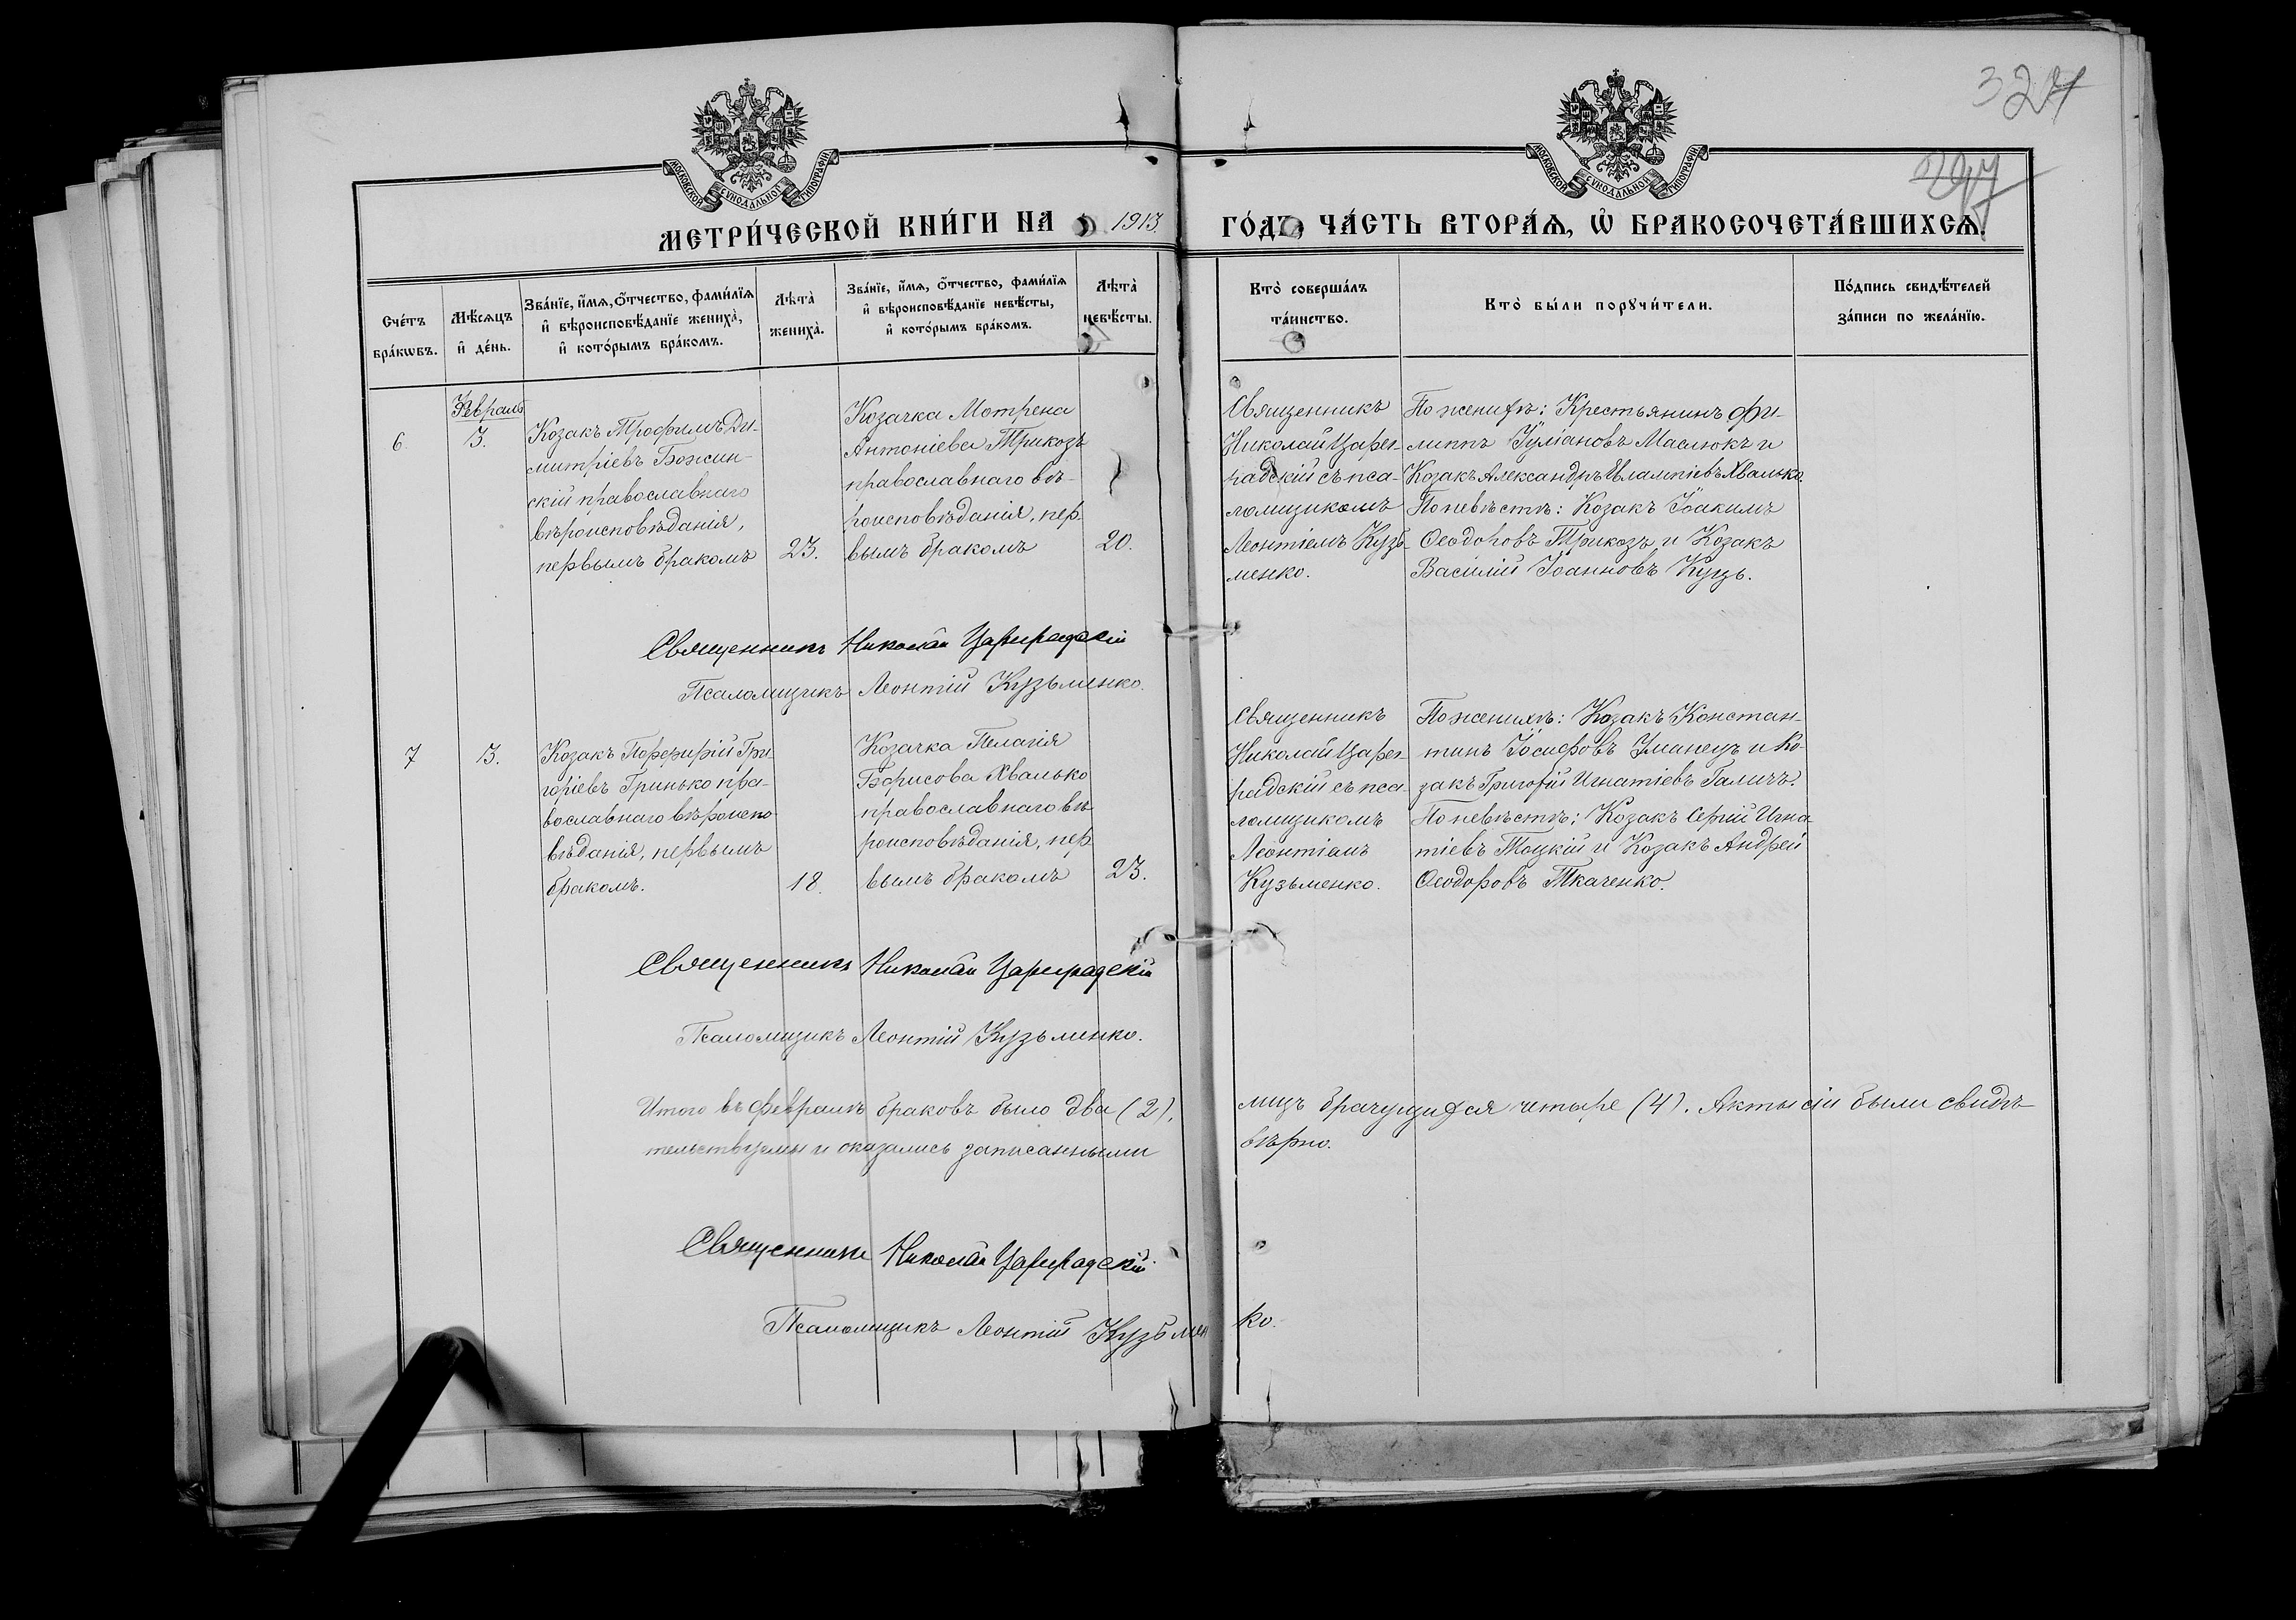 324
297
МОСКОВСКОЙ СѴНОДАЛЬНОЙ ТИПОГРАФІИ
МОСКОВСКОЙ СѴНОДАЛЬНОЙ ТИПОГРАФІИ
МЕТРИ́ЧЕСКОЙ КНИ́ГИ НА 1913.
ГО́ДЪ, ЧА́СТЬ ВТОРА́Ѧ, Ѡ҆ БРАКОСОЧЕТА́ВШИХСѦ.
Сче́тъ
бра́кѡвъ.
Мѣ́сѧцъ
и҆ де́нь.
Зва́нїе, и҆́мѧ, ѻ҆́тчество, фами́лїѧ
и҆ вѣроисповѣ́данїе жениха̀,
и҆ кото́рымъ бра́комъ.
Лѣта̀
жениха̀.
Зва́нїе, и҆́мѧ, ѻ҆́тчество, фами́лїѧ
и҆ вѣроисповѣ́данїе невѣ́сты,
и҆ кото́рымъ бра́комъ.
Лѣта̀
невѣ́сты.
Кто̀ соверша́лъ
та́инство.
Кто̀ бы́ли порꙋчи́тели.
По́дпись свидѣ́телей
за́писи по жела́нїю.
6.
Февраль
3.
Козакъ Трофимъ Ди-
митріевъ Божин-
скій православнаго
вѣроисповѣданія,
первымъ бракомъ
23.
Козачка Мотрена
Антоніева Трикозъ
православнаго вѣ-
роисповѣданія, пер-
вымъ бракомъ
20.
Священникъ
Николай Царег-
радскій съ пса-
ломщикомъ
Леонтіемъ Кузь-
менко.
По женихѣ: Крестьянинъ Фи-
липпъ Іуліановъ Маслюкъ и
Козакъ Александръ Евлампіевъ Хвалько.
По невѣстѣ: Козакъ Іоакимъ
Ѳеодоровъ Трикозъ и Козакъ
Василій Іоанновъ Куць.
Священникъ Николай Цареградскій
Псаломщикъ Леонтій Кузьменко.
7
3.
Козакъ Порфирій Гри-
горіевъ Гринько пра-
вославнаго вѣроиспо-
вѣданія, первымъ
бракомъ.
18.
Козачка Пелагія
Борисова Хвалько
православнаго вѣ-
роисповѣданія, пер-
вымъ бракомъ
23.
Священникъ
Николай Царег-
радскій съ пса-
ломщикомъ
Леонтіемъ
Кузьменко.
По женихѣ: Козакъ Констан-
тинъ Іосифовъ Уманецъ и Ко-
закъ Григорій Игнатіевъ Галичъ.
По невѣстѣ: Козакъ Сергій Игна-
тіевъ Тоцкій и Козакъ Андрей
Ѳеодоровъ Ткаченко.
Священникъ Николай Цареградскій
Псаломщикъ Леонтій Кузьменко.
Итого въ февралѣ браковъ было два (2), лицъ брачущихся четыре (4). Акты сіи были свидѣ-
тельствуемы и оказались записанными вѣрно.
Священникъ Николай Цареградскій
Псаломщикъ Леонтій Кузьменко.